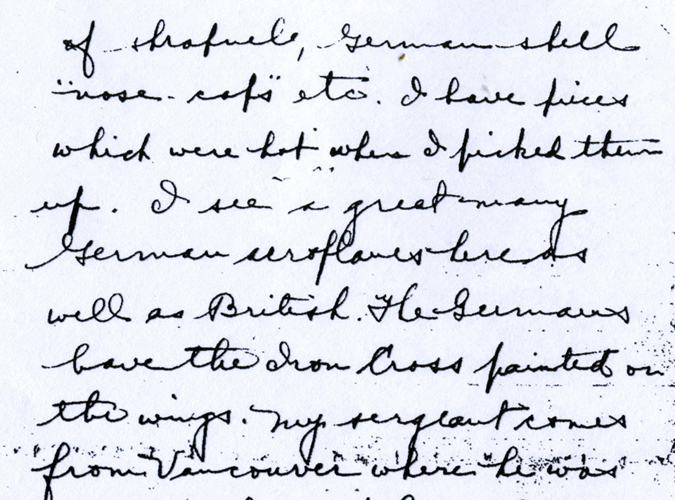 of shrapnels, German shell
"nose-caps" etc. I have pieces
which were hot when I picked them
up. I see a great many
German aeroplanes here as
well as British. The Germans
have the Iron Cross painted on
the wings. My sergeant comes
from Vancouver where he was